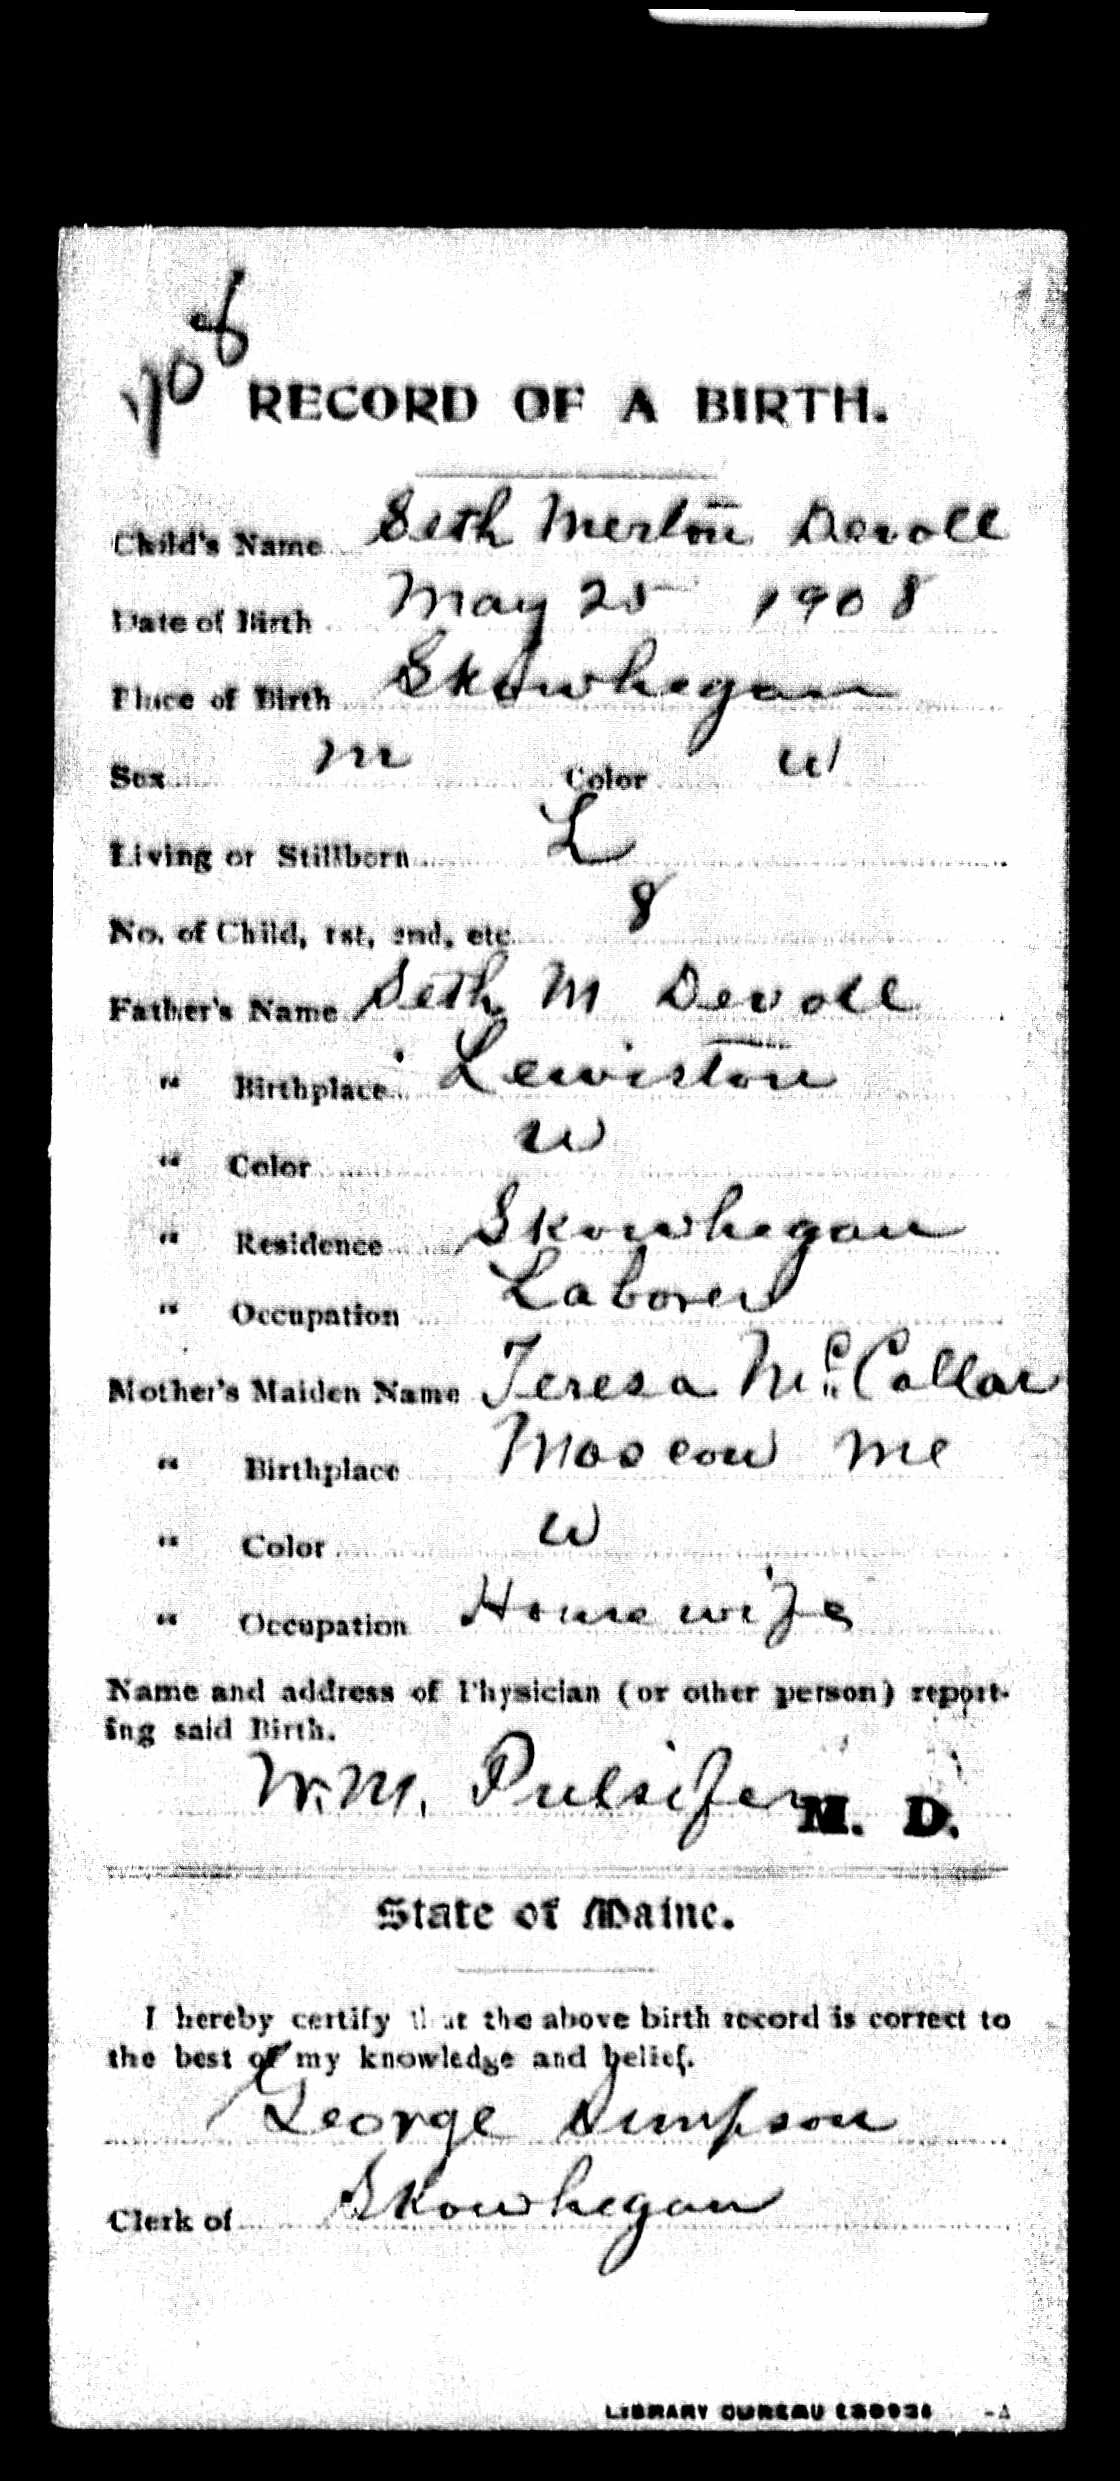 1908
RECORD OF A BIRTH.
Child's Name Seth Merton Devoll
Date of Birth May 25 1908
Place of Birth Skowhegan
Sex m Color W
Living or Stillborn L
No. of Child, 1st, 2nd, etc. 8
Father's Name Seth M Devoll
" Birthplace Lewiston
" Color W
" Residence Skowhegan
" Occupation Laborer
Mother's Maiden Name Teresa McCollar
" Birthplace Moscow Me
" Color W
" Occupation Housewife
Name and address of Physician (or other person) report-
ing said Birth.
W.M. Pulsifer M. D.
State of Maine.
I hereby certify that the above birth record is correct to
the best of my knowledge and belief.
George Simpson
Clerk of Skowhegan
LIBRARY BUREAU